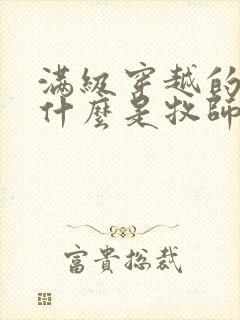 滿級穿越的
什麼是牧師
富貴總裁